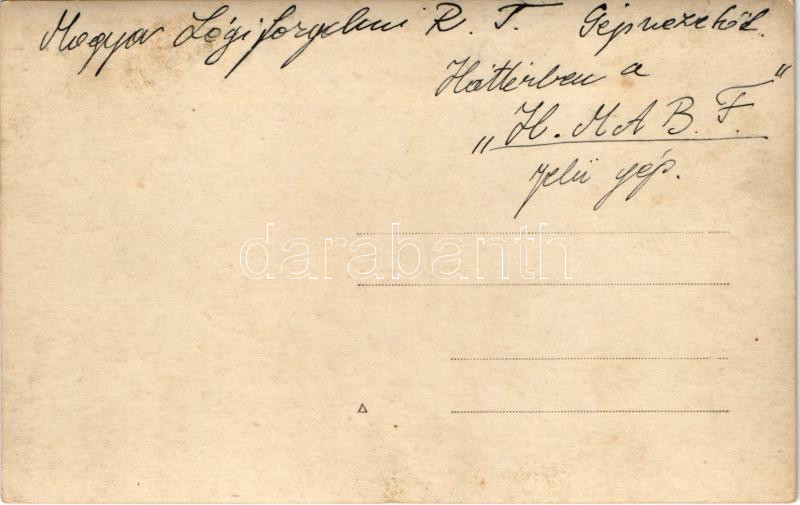 Magyar Légiforgalmi R. T. Gépvezetők.
Háttérben a
„H. M A B. F.”
jelü gép.
darabanth